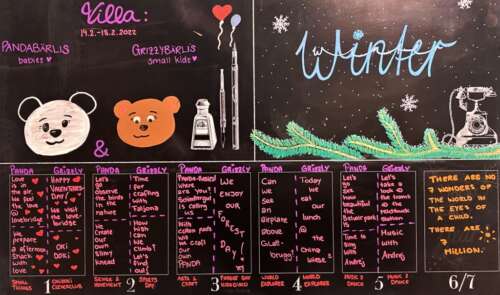 Villa:
14.2.-18.2.2022
PANDABÄRLIS
babies ♥
GRIZZYBÄRLIS
small kids ♥
&
Winter
PANDA
Love
is in
the air.
We feel
the love
@ the
lovebridge
We
prepare
a
afternoon
Snack
with
love
GRIZZLY
HAPPY
VALENTINES
DAY!
@ the
love-
bridge
OKI
DOKI
PANDA
Let's
go
observe
the birds
in the
nature
We
create
our
own
Slimy
Slime!
GRIZZLY
Time
for
crafting
with
Fabiona
How
high
can
We
Climb?
Let's
find
out!
PANDA
Where
are you?
is calling
us
With
cotton pads
we
craft our
Own
PANDA
GRIZZLY
WE
ENJOY
OUR
FOREST
DAY!
PANDA
Can
we
See
an
airplane
Above
Glatt-
brugg?
GRIZZLY
Today
we
eat
our
lunch
@
the
China
Wiese!
PANDA
Let's
go
how
beautiful
the
park
is
Time to
Sing
with
Andrej
GRIZZLY
Let's
take a
look @
the
@ the
station
Music
with
Andrej
THERE ARE NO
7 WONDERS OF
THE WORLD
IN THE EYES OF
A CHILD.
THERE ARE
7
MILLION.
SMALL
THINGS
1
SCIENCE &
MOVEMENT
2
SPORTS
DAY
ARTS &
CRAFT
3
FOREST DAY
WORLD
EXPLORER
4
WORLD
EXPLORER
MUSIC &
DANCE
5
MUSIC &
DANCE
6/7